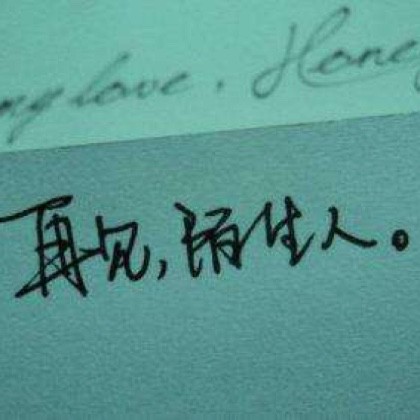 my love, Honey
再见,陌生人。